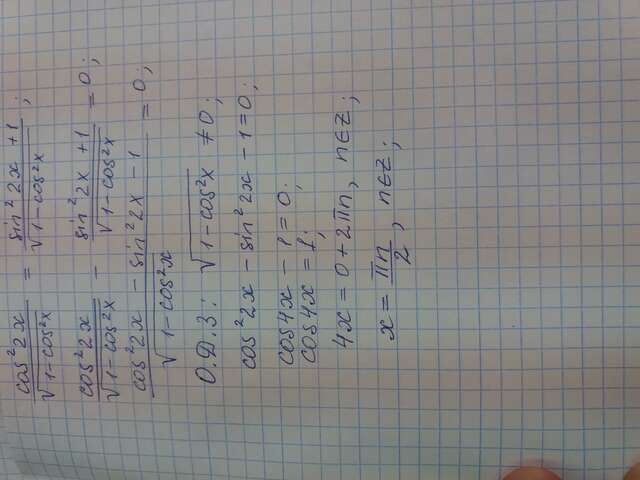 cos²2x / √(1-cos²x) = (sin²2x+1) / √(1-cos²x) ;
cos²2x / √(1-cos²x) - (sin²2x+1) / √(1-cos²x) = 0;
(cos²2x - sin²2x - 1) / √(1-cos²x) = 0;
О.Д.З: √(1-cos²x) ≠ 0;
cos²2x - sin²2x - 1 = 0;
cos4x - 1 = 0;
cos4x = 1;
4x = 0 + 2πn, n∈Z;
x = πn/2, n∈Z;